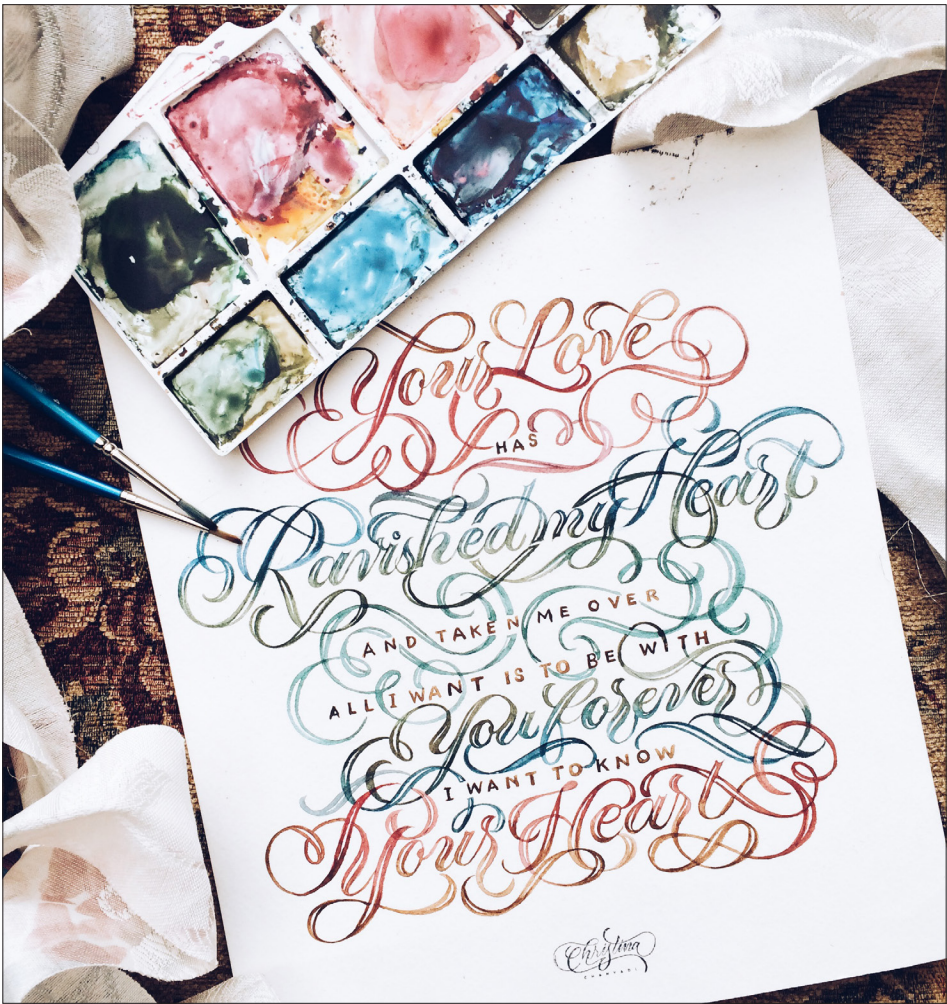 Your Love
HAS
Ravished my Heart
AND TAKEN ME OVER
ALL I WANT IS TO BE WITH
You forever
I WANT TO KNOW
Your Heart
Christina